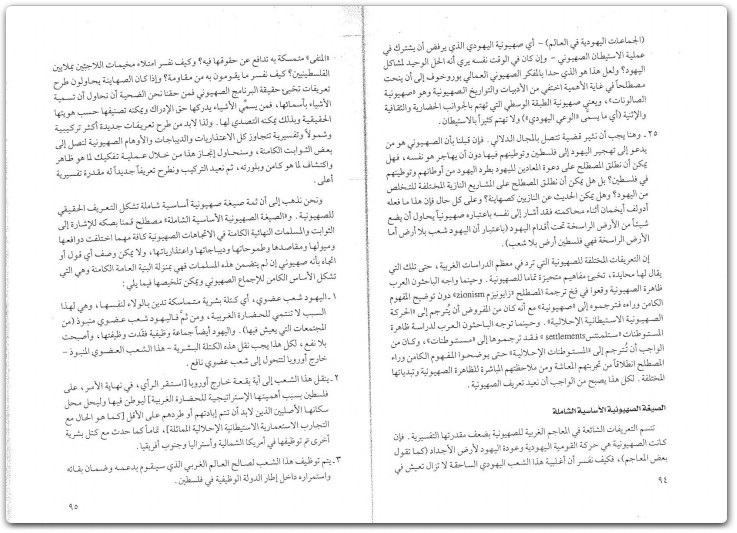 (الجماعات اليهودية في العالم) – أي صهيونية اليهودي الذي يرفض أن يشترك في
عملية الاستيطان الصهيوني – وإن كان في الوقت نفسه يرى أنه الحل الوحيد لمشاكل
اليهود؟ ولعل هذا هو الذي حدا بالمفكر الصهيوني العمالي بوروخوف إلى أن ينحت
مصطلحاً في غاية الأهمية اختفي من الأدبيات والتواريخ الصهيونية وهو «صهيونية
الصالونات»، ويعني صهيونية الطبقة الوسطي التي تهتم بالجوانب الحضارية والثقافية
والإثنية (أي ما يسمّى «الوعي اليهودي») ولا تهتم كثيراً بالاستيطان.
٢٥ ـ وهنا يجب أن نثير قضية تتصل بالمجال الدلالي. فإن قبلنا بأن الصهيوني هو من
يدعو إلى تهجير اليهود إلى فلسطين وتوطينهم فيها دون أن يهاجر هو نفسه، فهل
يمكن أن نطلق المصطلح على دعوة المعادين لليهود بطرد اليهود من أوطانهم وتوطينهم
في فلسطين؟ بل هل يمكن أن نطلق المصطلح على المشاريع النازية المختلفة للتخلص
من اليهود؟ وهل يمكن الحديث عن النازيين كصهاينة؟ وعلى كل حال فإن هذا ما فعله
أدولف أيخمان أثناء محاكمته فقد أشار إلى نفسه باعتباره صهيونياً يحاول أن يضع
شيئاً من الأرض الراسخة تحت أقدام اليهود (باعتبار أن اليهود شعب بلا أرض أما
الأرض الراسخة فهي فلسطين أرض بلا شعب).
إن التعريفات المختلفة للصهيونية التي ترد في معظم الدراسات الغربية، حتى تلك التي
يقال لها محايدة، تخبئ مفاهيم متحيزة تماماً للصهيونية. وحينما واجه الباحثون العرب
ظاهرة الصهيونية وقعوا في فخ ترجمة المصطلح «زايونيزم zionism» دون توضيح المفهوم
الكامن وراءه فترجموه إلى «صهيونية» مع أنه كان من المفروض أن يُترجم إلى «الحركة
الصهيونية الاستيطانية الإحلالية». وحينما توجه الباحثون العرب لدراسة ظاهرة
المستوطنات «ستلمنتس settlements» فقد ترجموها إلى «مستوطنات»، وكان من
الواجب أن تُترجم إلى «المستوطنات الإحلالية» حتى يوضحوا المفهوم الكامن وراء
المصطلح انطلاقاً من تجربتهم المعاشة ومن ملاحظتهم المباشرة للظاهرة الصهيونية وتبدياتها
المختلفة. لكل هذا يصبح من الواجب أن نعيد تعريف الصهيونية.
الصيغة الصهيونية الأساسية الشاملة
تتسم التعريفات الشائعة في المعاجم الغربية للصهيونية بضعف مقدرتها التفسيرية. فإن
كانت الصهيونية هي حركة القومية اليهودية وعودة اليهود لأرض الأجداد (كما تقول
بعض المعاجم)، فكيف نفسر أن أغلبية هذا الشعب اليهودي الساحقة لا تزال تعيش في
٩٤
«المنفى» متمسكة به تدافع عن حقوقها فيه؟ وكيف نفسر امتلاء مخيمات اللاجئين بملايين
الفلسطينيين؟ كيف نفسر ما يقومون به من مقاومة؟ وإذا كان الصهاينة يحاولون طرح
تعريفات تخبئ حقيقة البرنامج الصهيوني فمن حقنا نحن الضحية أن نحاول أن تسمية
الأشياء بأسمائها، فمن يسمِّي الأشياء يدركها حق الإدراك ويمكنه تصنيفها حسب هويتها
الحقيقية وبذلك يمكنه التصدي لها. ولذا لابد من طرح تعريفات جديدة أكثر تركيبية
وشمولاً وتفسيرية تتجاوز كل الاعتذاريات والديباجات والأوهام الصهيونية لتصل إلى
بعض الثوابت الكامنة، وسنحاول إنجاز هذا من خلال عملية تفكيك لما هو ظاهر
واكتشاف لما هو كامن وبلورته، ثم نعيد التركيب ونطرح تعريفاً جديداً له مقدرة تفسيرية
أعلى.
ونحن نذهب إلى أن ثمة صيغة صهيونية أساسية شاملة تشكل التعريف الحقيقي
للصهيونية. و«الصيغة الصهيونية الأساسية الشاملة» مصطلح قمنا بصكه للإشارة إلى
الثوابت والمسلمات النهائية الكامنة في الاتجاهات الصهيونية كافة مهما اختلفت دوافعها
وميولها ومقاصدها وطموحاتها وديباجاتها واعتذارياتها، ولا يمكن وصف أي قول أو
اتجاه بأنه صهيوني إن لم يتضمن هذه المسلمات فهي بمنزلة البنية العامة الكامنة وهي التي
تشكل الأساس الكامن للإجماع الصهيوني ويمكن تلخيصها فيما يلي:
١ ـ اليهود شعب عضوي، أي كتلة بشرية متماسكة تدين بالولاء لنفسها، وهي لهذا
السبب لا تنتمي للحضارة الغربية، ومن ثم فاليهود شعب عضوي منبوذ (من
المجتمعات التي يعيش فيها). واليهود أيضاً جماعة وظيفية فقدت وظيفتها، وأصبحت
بلا نفع، لكل هذا يجب نقل هذه الكتلة البشرية – هذا الشعب العضوي المنبوذ –
خارج أوروبا لتتحول إلى شعب عضوي نافع.
٢ ـ ينقل هذا الشعب إلى أية بقعة خارج أوروبا [استقر الرأي، في نهاية الأمر، على
فلسطين بسبب أهميتها الإستراتيجية للحضارة الغربية] ليوطن فيها وليحل محل
سكانها الأصليين الذين لابد أن تتم إبادتهم أو طردهم على الأقل [كما هو الحال مع
التجارب الاستعمارية الاستيطانية الإحلالية المماثلة]، تماماً كما حدث مع كتل بشرية
أخرى تم توظيفها في أمريكا الشمالية وأستراليا وجنوب أفريقيا.
٣ ـ يتم توظيف هذا الشعب لصالح العالم الغربي الذي سيقوم بدعمه وضمان بقائه
واستمراره داخل إطار الدولة الوظيفية في فلسطين.
٩٥